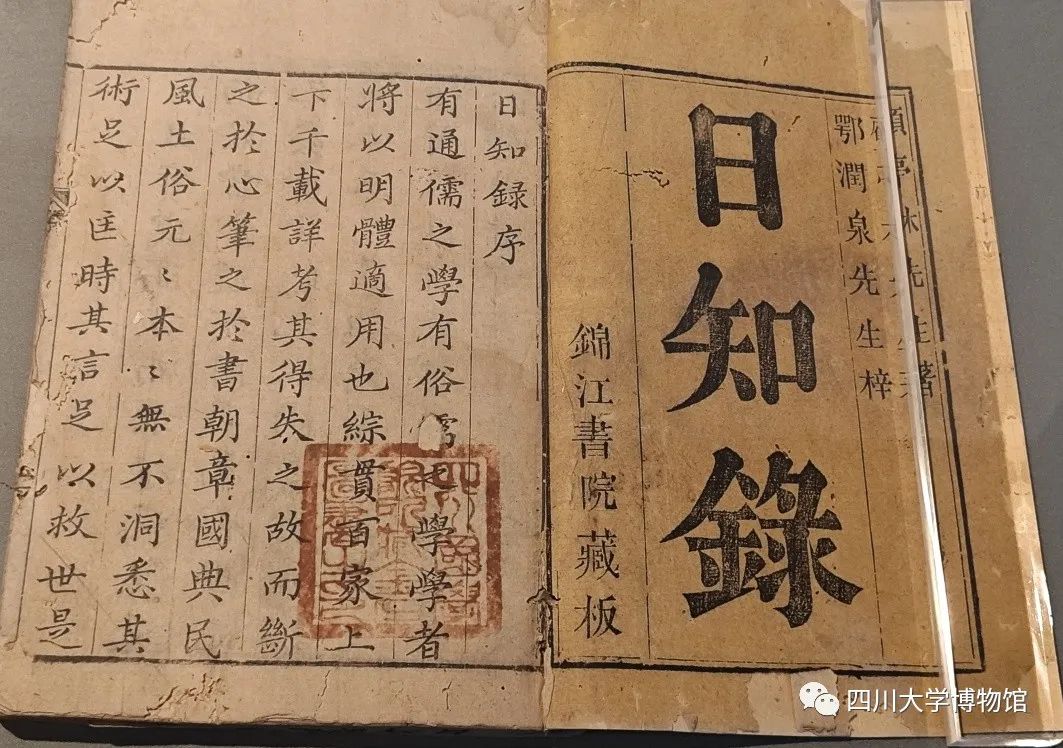 顧亭林先生著
鄂潤泉先生梓
日知錄
錦江書院藏板
日知録序
有通儒之學有俗儒之學學者
將以明體適用也綜貫百家上
下千載詳考其得失之故而斷
之於心筆之於書朝章國典民
風土俗元〻本〻無不洞悉其
術足以匡時其言足以救世是
四川大学博物馆